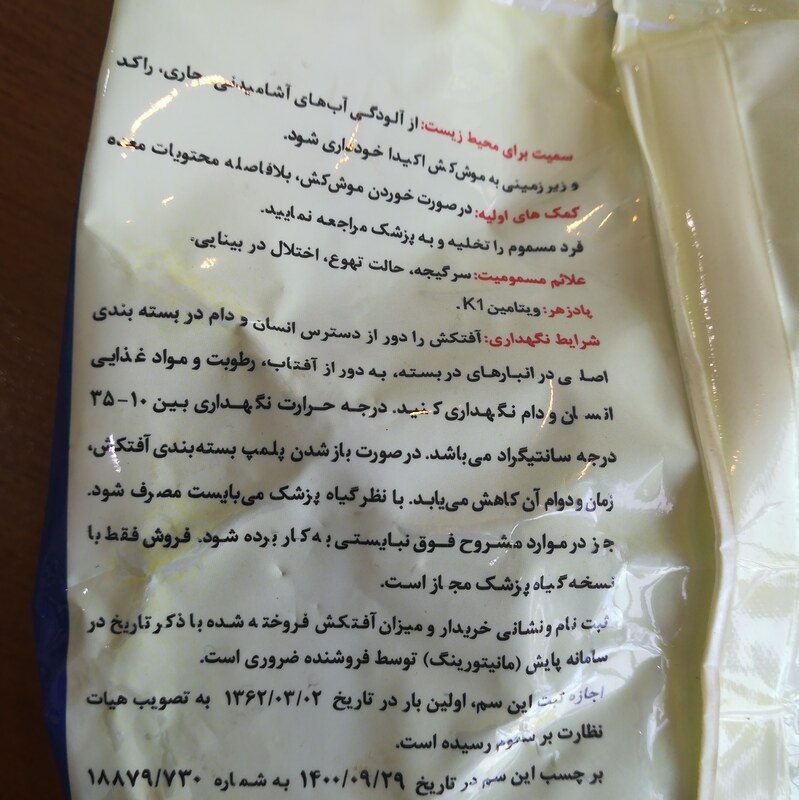 سمیت برای محیط زیست: از آلودگی آب‌های آشامیدنی، جاری، راکد
و زیر زمینی به موش‌کش اکیدا خودداری شود.
کمک های اولیه: در صورت خوردن موش‌کش، بلافاصله محتویات معده
فرد مسموم را تخلیه و به پزشک مراجعه نمایید.
علائم مسمومیت: سرگیجه، حالت تهوع، اختلال در بینایی.
پادزهر: ویتامین K1.
شرایط نگهداری: آفتکش را دور از دسترس انسان و دام در بسته بندی
اصلی در انبارهای در بسته، به دور از آفتاب، رطوبت و مواد غذایی
انسان و دام نگهداری کنید. درجه حرارت نگهداری بین ۱۰-۳۵
درجه سانتیگراد می‌باشد. در صورت باز شدن پلمپ بسته‌بندی آفتکش،
زمان و دوام آن کاهش می‌یابد. با نظر گیاه پزشک می‌بایست مصرف شود.
جز در موارد مشروح فوق نبایستی به کار برده شود. فروش فقط با
نسخه گیاه پزشک مجاز است.
ثبت نام و نشانی خریدار و میزان آفتکش فروخته شده با ذکر تاریخ در
سامانه پایش (مانیتورینگ) توسط فروشنده ضروری است.
اجازه ثبت این سم، اولین بار در تاریخ ۱۳۶۲/۰۳/۰۲ به تصویب هیات
نظارت بر سموم رسیده است.
بر چسب این سم در تاریخ ۱۴۰۰/۰۹/۲۹ به شماره ۱۸۸۷۹/۷۳۰